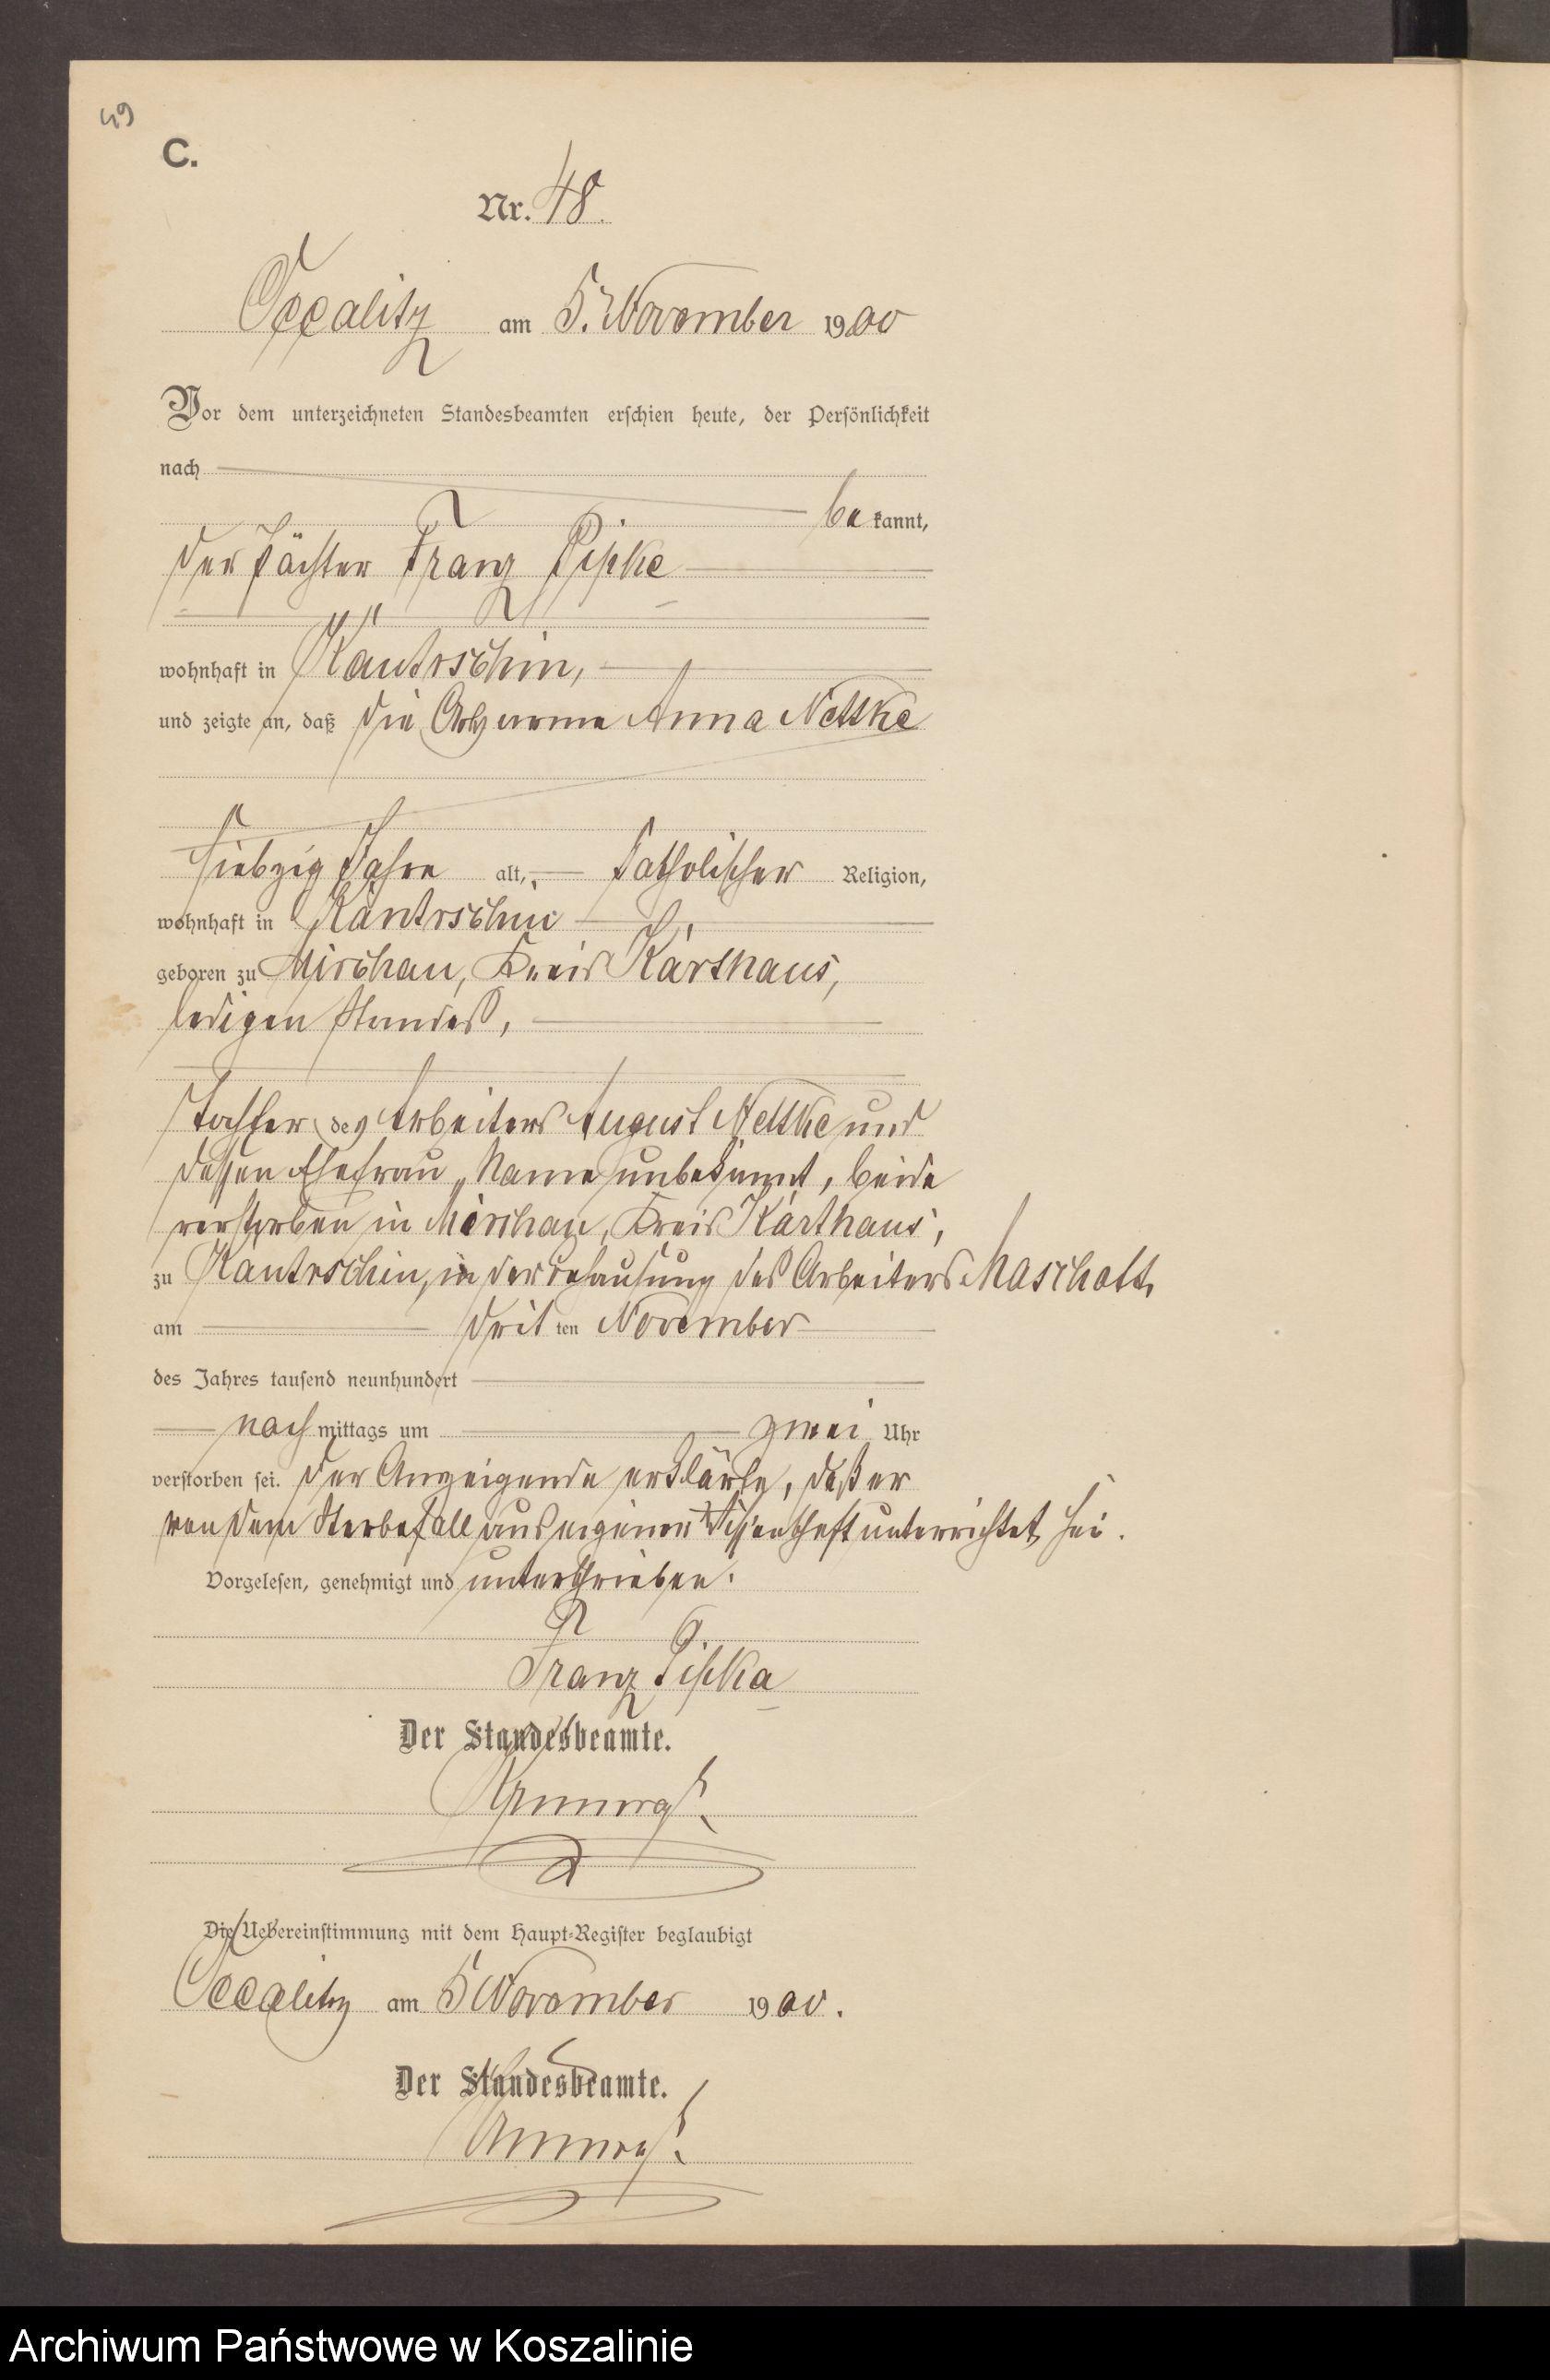 49
C.
Nr. 48.
Occalitz am 5. November 1900
Vor dem unterzeichneten Standesbeamten erschien heute, der Persönlichkeit
nach
bekannt,
der Pächter Franz Pipke
wohnhaft in Kantrschin,
und zeigte an, daß die Ortsarme Anna Nettke
siebzig Jahre alt, katholischer Religion,
wohnhaft in Kantrschin
geboren zu Mirchau, Kreis Karthaus,
ledigen Standes,
Tochter des Arbeiters August Nettke und
dessen Ehefrau, Name unbekannt, beide
verstorben in Mirchau, Kreis Karthaus,
zu Kantrschin, in der Behausung des Arbeiters Maschott,
am dritten November
des Jahres tausend neunhundert
nachmittags um zwei Uhr
verstorben sei. Der Anzeigende erklärte, daß er
von dem Sterbefall aus eigener Wissenschaft unterrichtet sei.
Vorgelesen, genehmigt und unterschrieben.
Franz
Der Standesbeamte.
Die Uebereinstimmung mit dem Haupt-Register beglaubigt
Occalitz am 5 November 1900.
Der Standesbeamte.
Archiwum Państwowe w Koszalinie